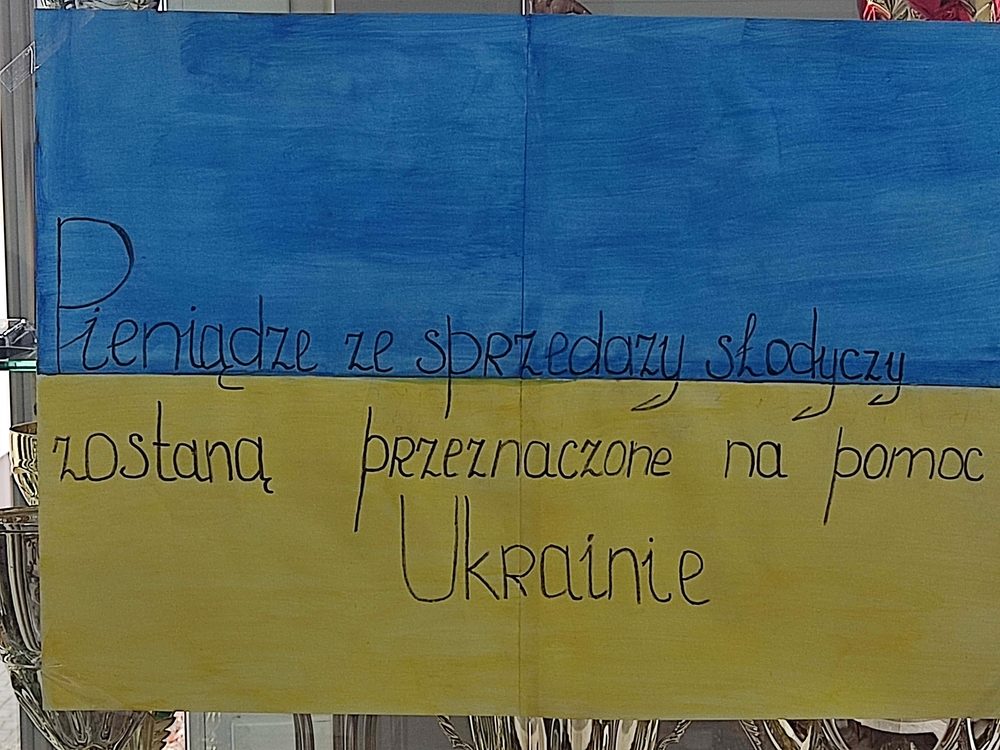 Pieniądze ze sprzedazy słodyczy
zostaną przeznaczone na pomoc
Ukrainie